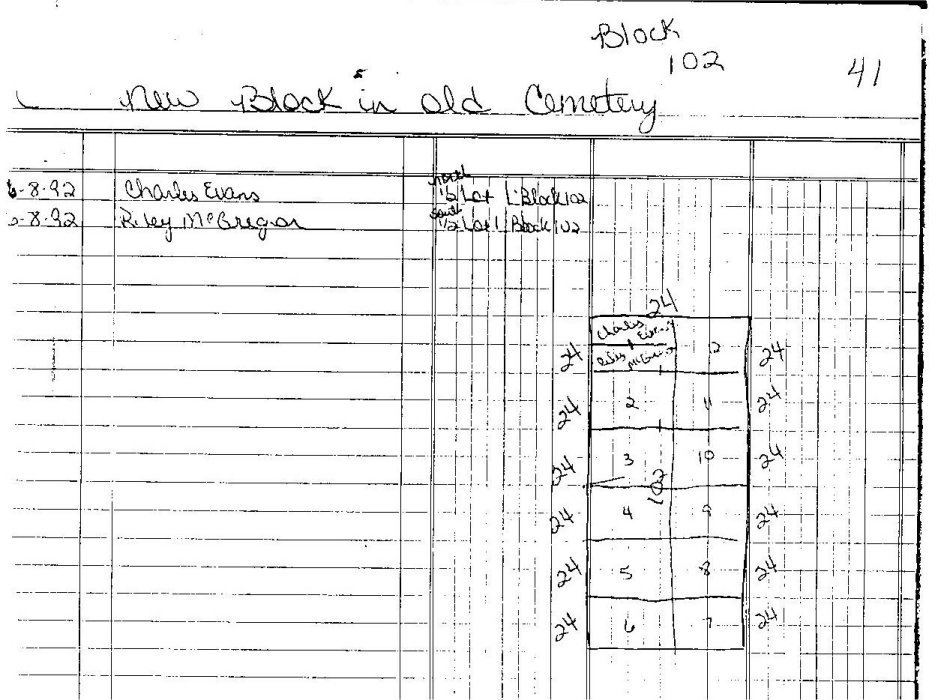 Block
102
41
New Block in old Cemetery
6-8-92 Charles Evans north 1/2 Lot 1 Block 102
6-8-92 Riley McGregor south 1/2 Lot 1 Block 102
24
Charles Evans
24 1 12 24
Riley McGregor
24 2 11 24
24 3 10 24
102
24 4 9 24
24 5 8 24
24 6 7 24